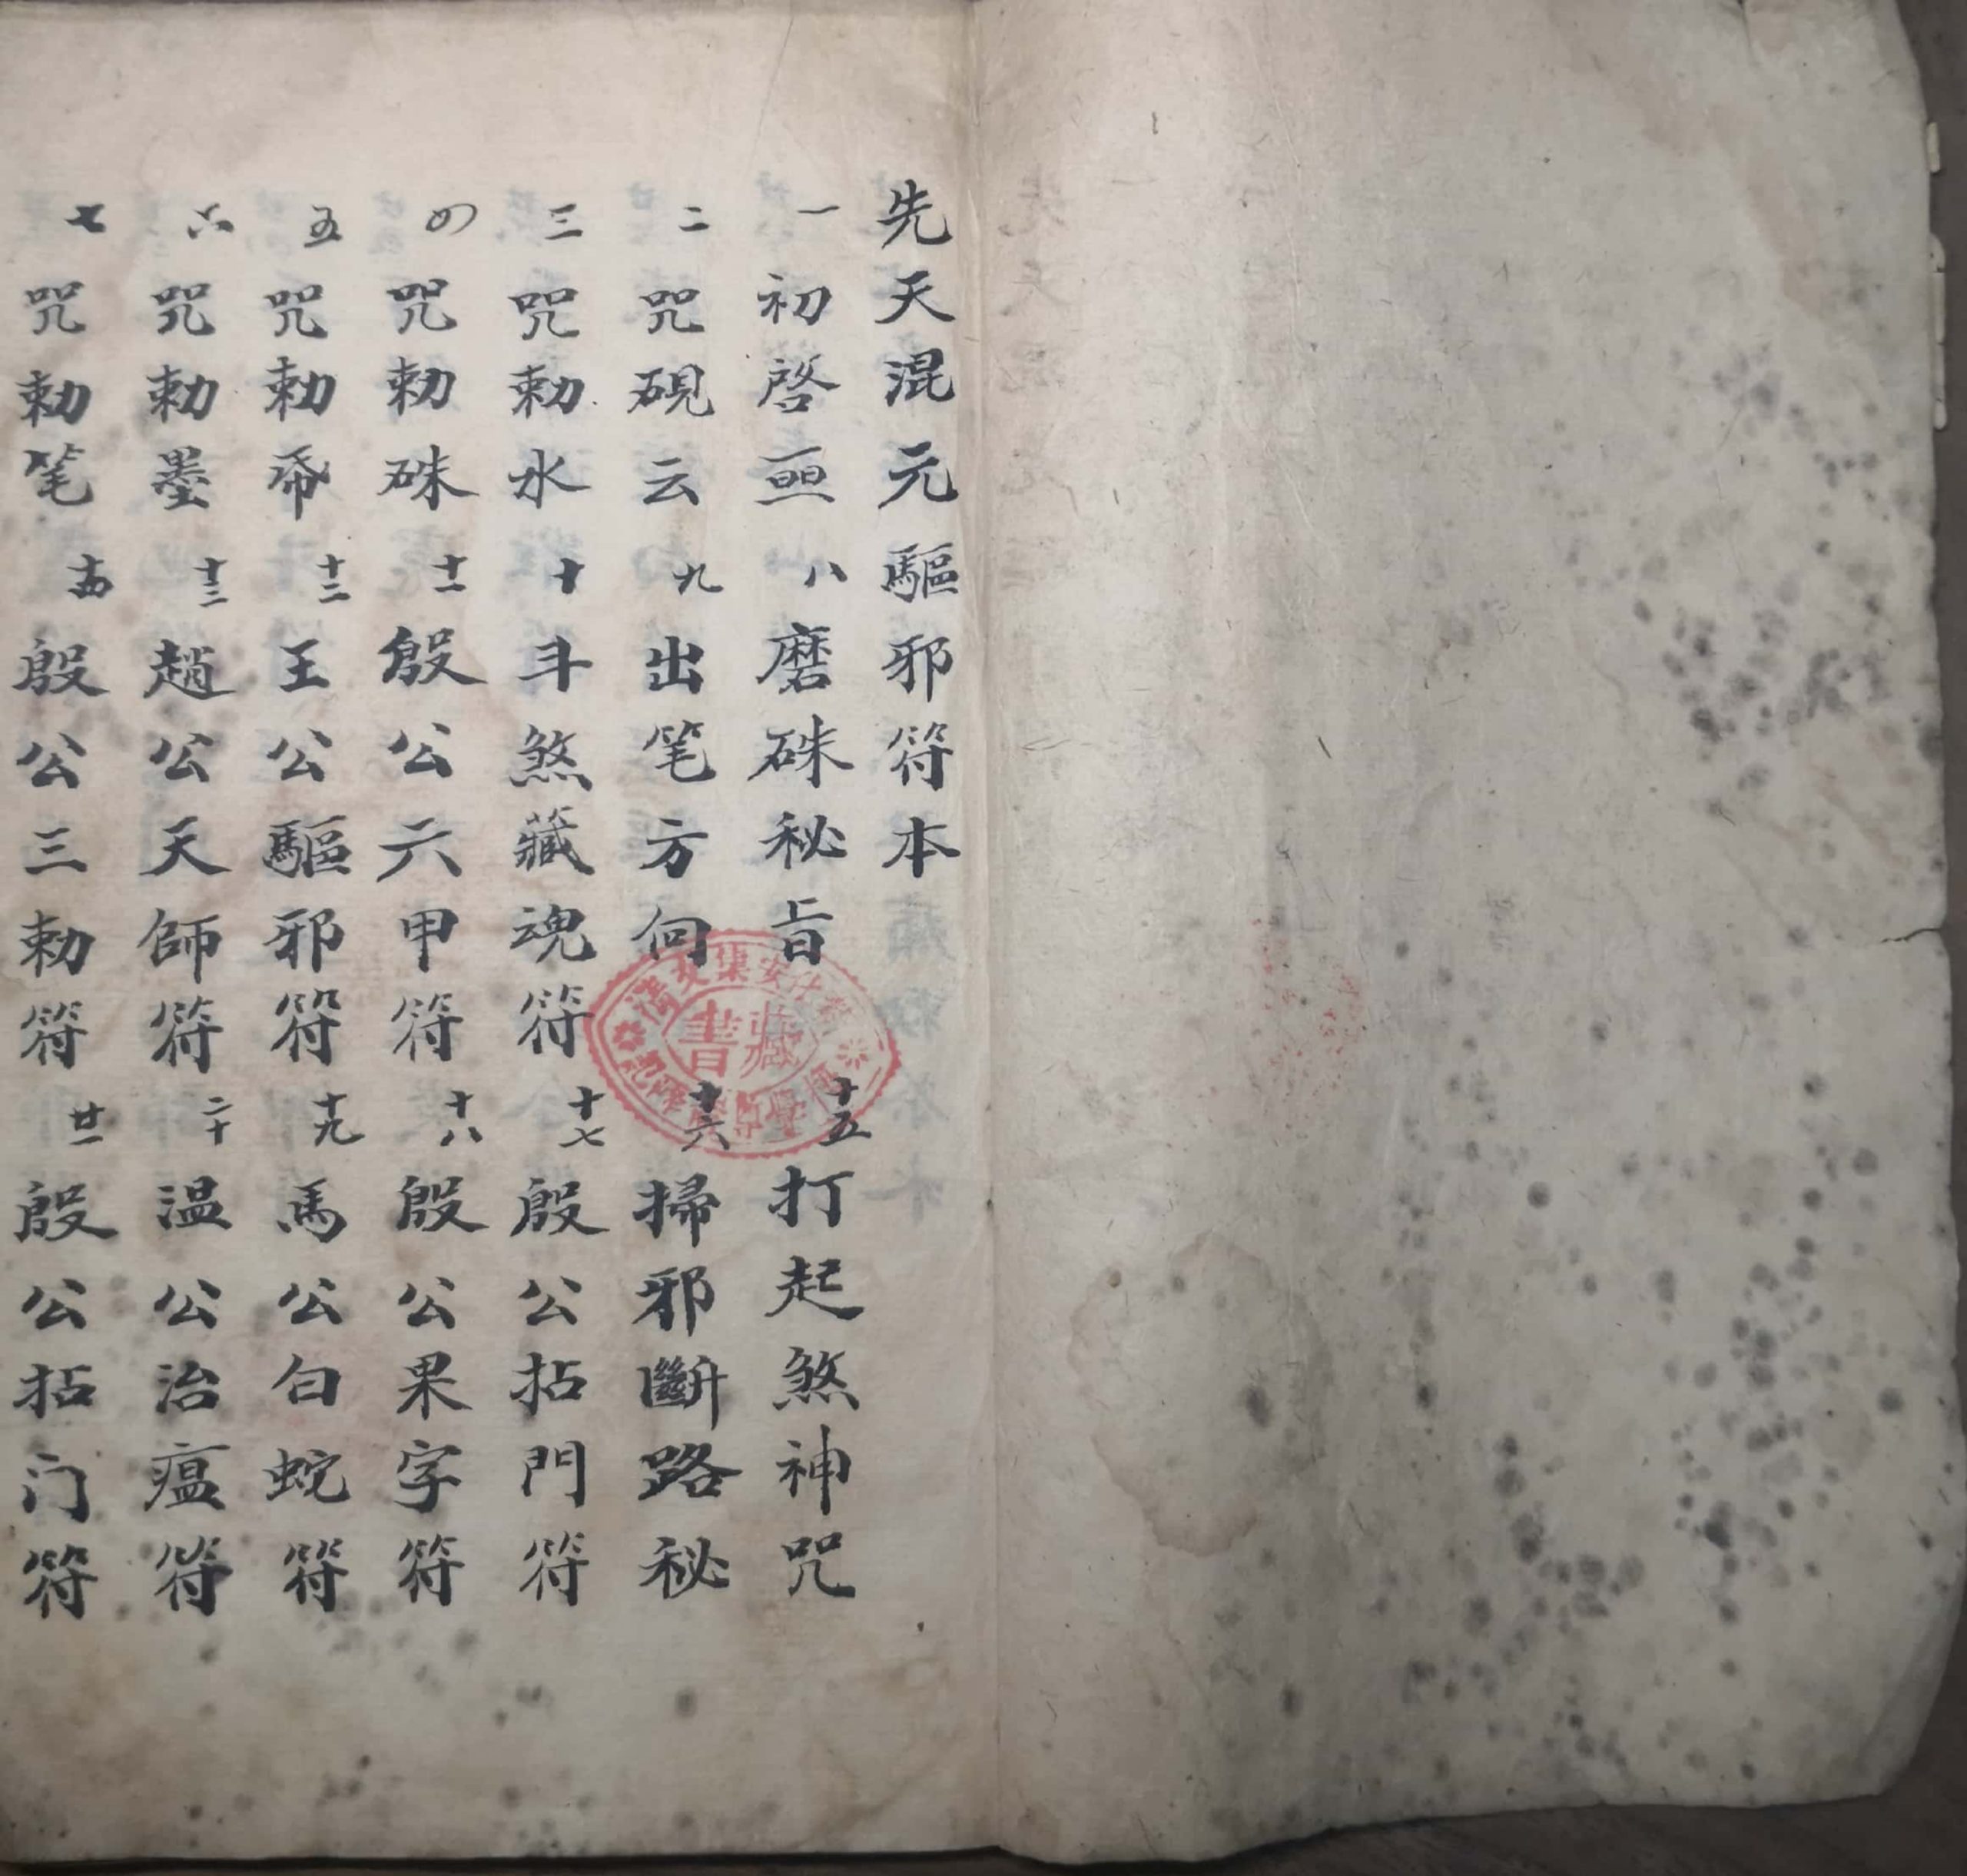 先天混元驅邪符本
一 初啓亜 八 磨硃秘旨 十五 打起煞神咒
二 咒硯云 九 出笔方向 十六 掃邪斷路秘
三 咒勅水 十 斗煞藏魂符 十七 殷公拈門符
四 咒勅硃 十一 殷公六甲符 十八 殷公果字符
五 咒勅帋 十二 王公驅邪符 十九 馬公白蛇符
六 咒勅墨 十三 趙公天師符 二十 温公治瘟符
七 咒勅笔 十四 殷公三勅符 廿一 殷公拓门符
藏書